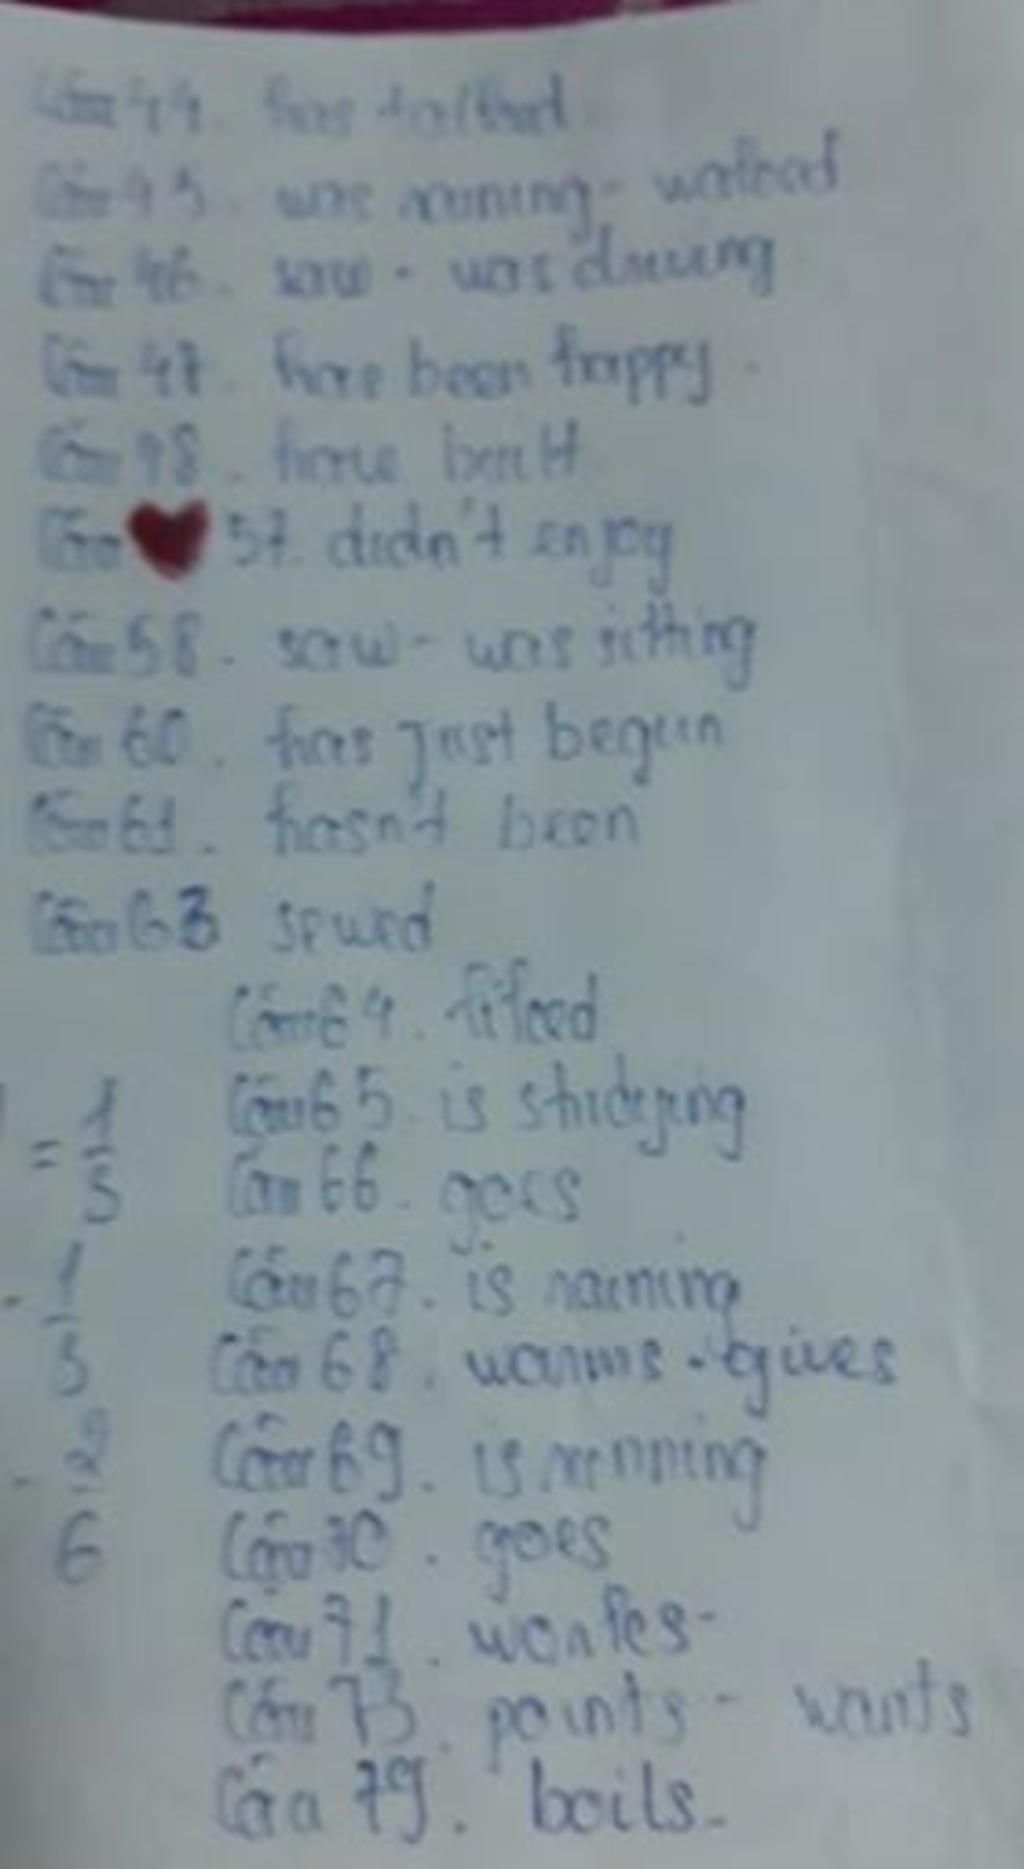 Câu 44. has talked
Câu 45. was raining - walked
Câu 46. saw - was driving
Câu 47. have been happy.
Câu 48. have built
Câu 57. didn't enjoy
Câu 58. saw - was sitting
Câu 60. has just begun
Câu 61. hasn't been
Câu 63 sewed
Câu 64. liked
= 1/5 Câu 65. is studying
Câu 66. goes
1/5 Câu 67. is raining
Câu 68. warms - gives
Câu 69. is running
6 Câu 70. goes
Câu 71. works-
Câu 73. points - wants
Câu 79. boils-